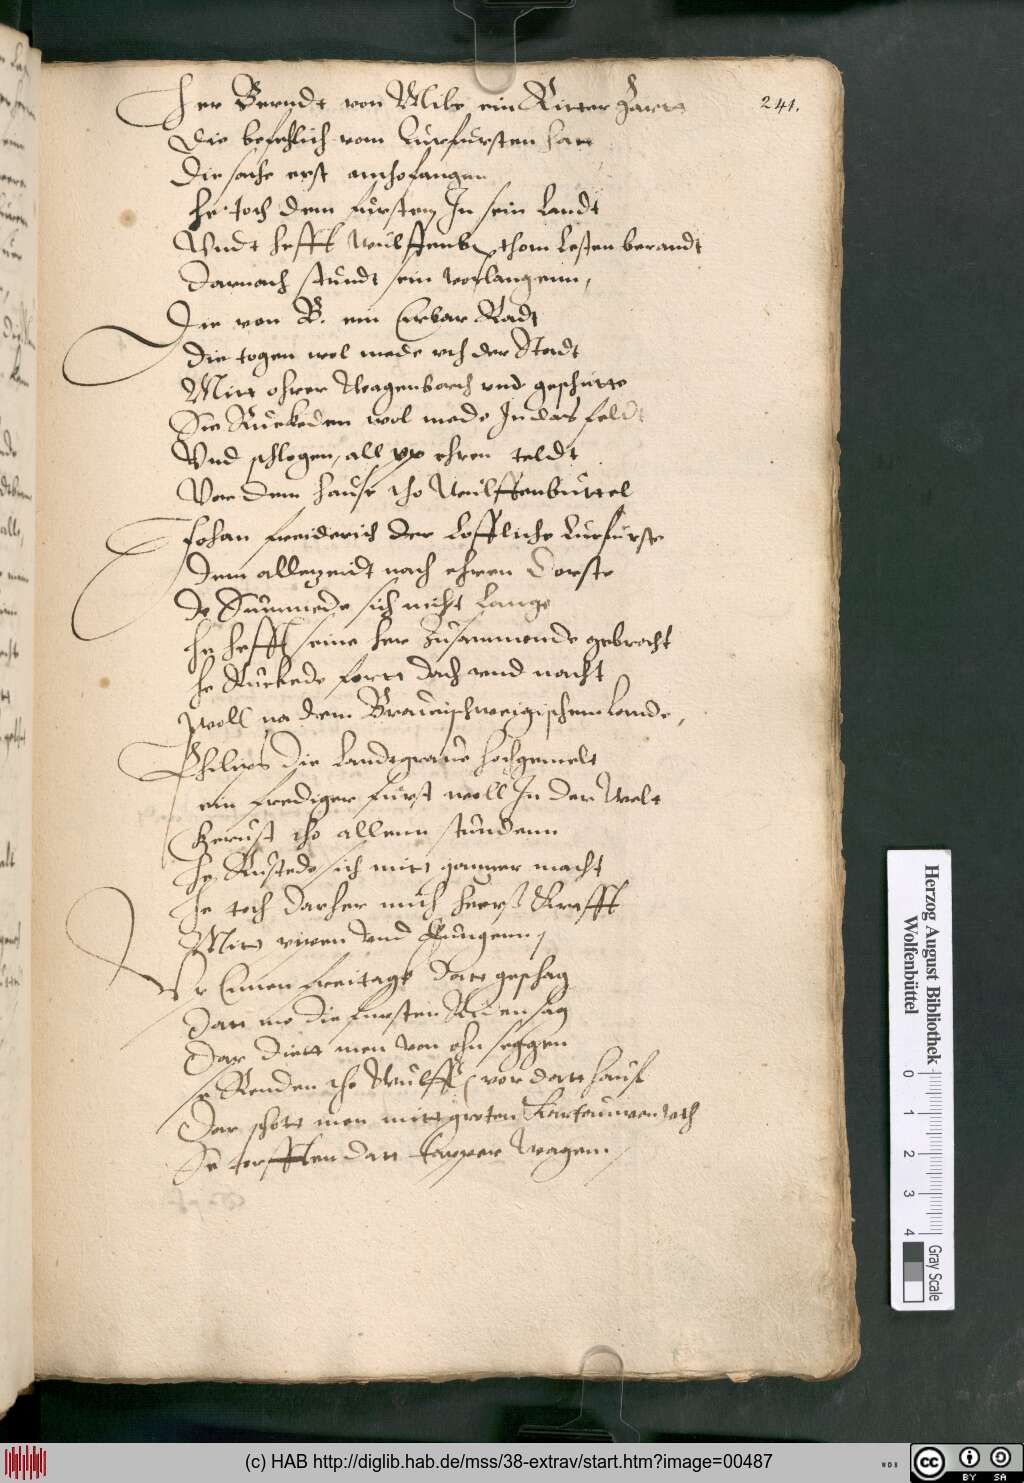 241.
Her Berndt von Mile ein Ritter zartt
Die befehlich vom Curfursten hatt
Die sache erst anthofangen
he toch dem fursten In sein Landt
Vndt hefft Wulffenb. thom Lesten berandt
Darnach stundt sein vorlangenn,
Die von B. ein Erbar Radt
die togen wol mede vth der Stadt
Mitt ohrer Wagenborch vnd geschutte
Sie Ruckeden wol mede In das feldt
Vnd schlogen all vp ehren teldt
Vor dem hause tho Wulffenbuttel
Johan freiderich der Loffliche Curfurst
Dem alletzeidt nach ehren Dorste
de Sumede sich nicht Lange
he hefft seine her zusammende gebrocht
he Ruckede fortt dach vnd nacht
woll na dem Braunschweigischem Lande,
Philips die Landtgraue hochgemelt
ein frediger furst woll In der Welt
Gerust tho allenn stundenn
he Rustede sich mitt gantzer macht
he toch daher mitt heers Krafft
Mitt ruteren vnd Jungenn,
Vp Einen freitagk datt geschag
Datt me die fursten Riden sag
Dar diett men von ohn seggen
se Renden tho Wulff. vor datt hauß
Dar schott men mitt groten Kartauwen vth
Se dorfften datt tapper wagenn,
Herzog August Bibliothek
Wolfenbüttel
0 1 2 3 4
Gray Scale
(c) HAB http://diglib.hab.de/mss/38-extrav/start.htm?image=00487
cc BY SA